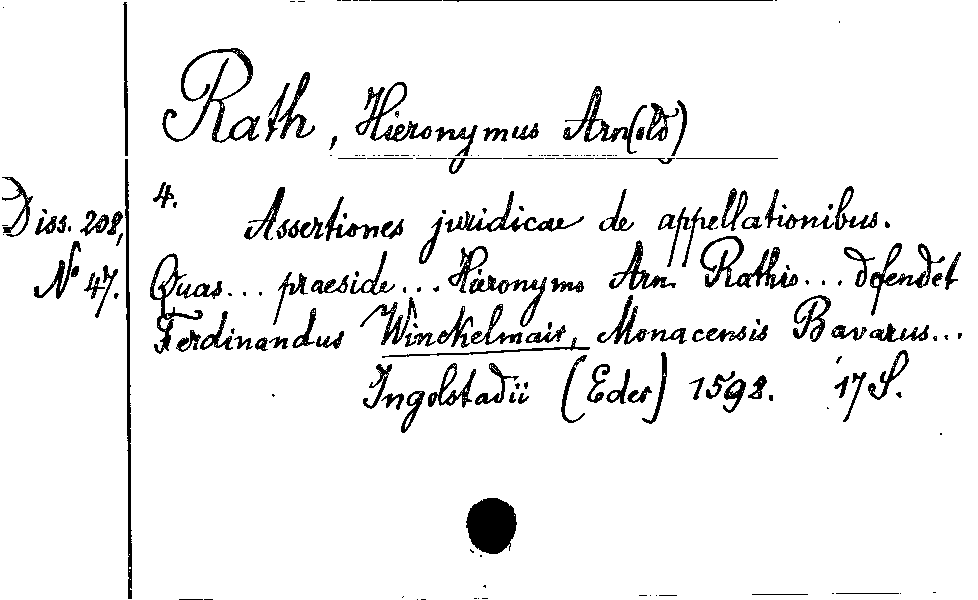 Rath, Hieronymus Arn(old)
4.
Diss. 208,
Nº 47.
Assertiones juridicae de appellationibus.
Quas... praeside... Hieronymo Arn. Rathio... defendet
Ferdinandus Winckelmair, Monacensis Bavarus...
Ingolstadii (Eder) 1598. 17 S.